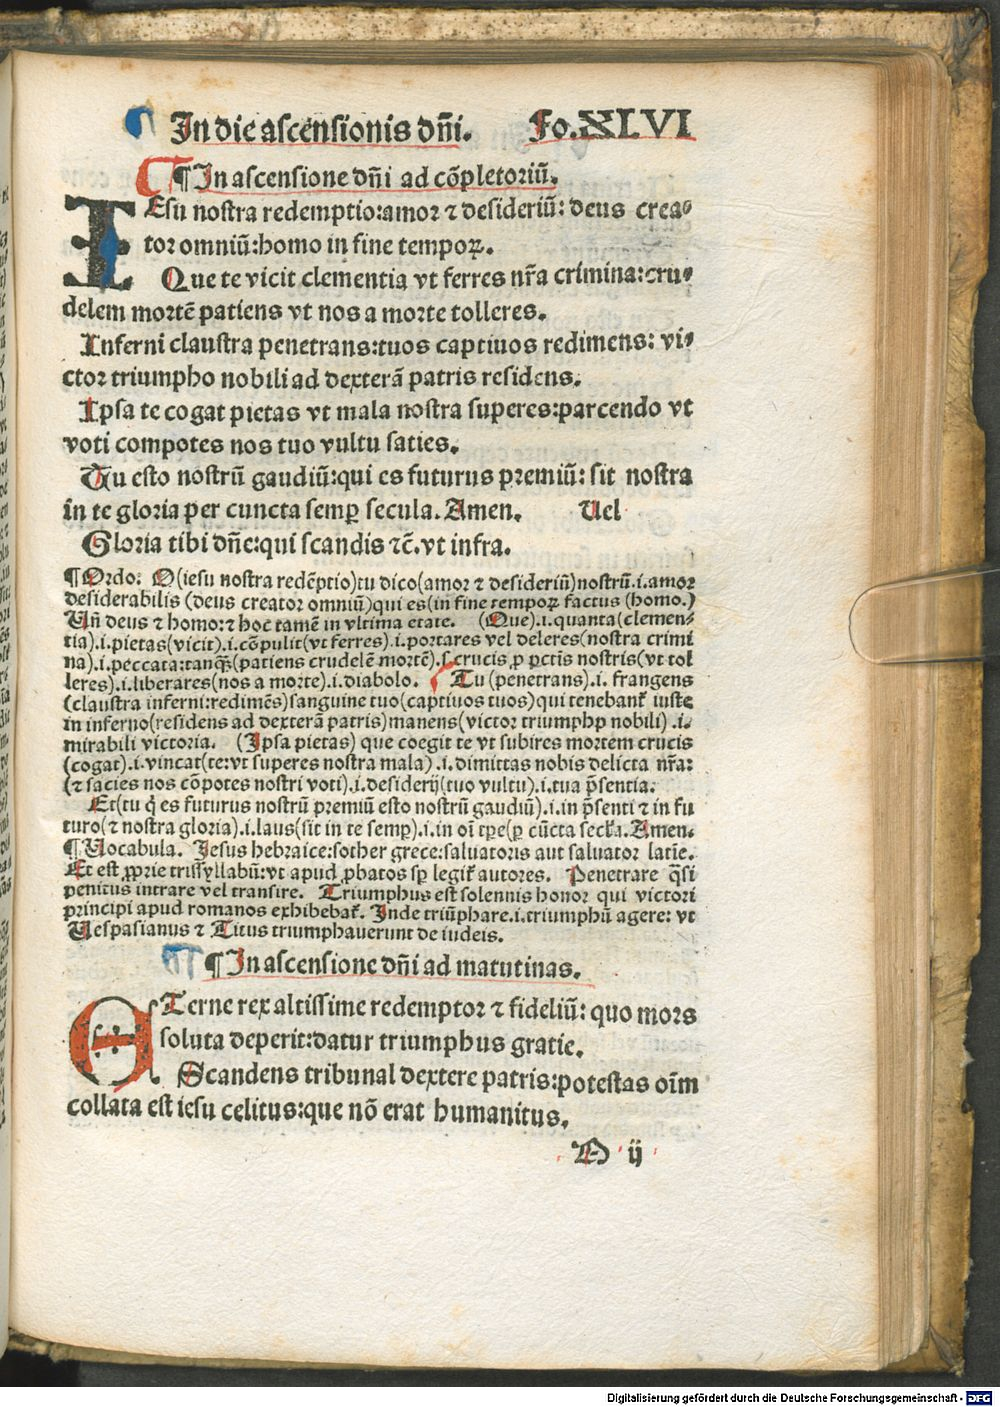 In die ascensionis dn̄i. Fo.XLVI
¶ In ascensione dn̄i ad cōpletoriū.
IEsu nostra redemptio:amor ⁊ desideriū: deus crea⸗
tor omniū:homo in fine tempoꝝ.
Que te vicit clementia vt ferres nr̄a crimina:cru⸗
delem mortē patiens vt nos a morte tolleres.
Inferni claustra penetrans:tuos captiuos redimens: vi⸗
ctor triumpho nobili ad dexterā patris residens.
Ipsa te cogat pietas vt mala nostra superes:parcendo vt
voti compotes nos tuo vultu saties.
Tu esto nostrū gaudiū:qui es futurus premiū: sit nostra
in te gloria per cuncta semꝑ secula. Amen. Uel
Gloria tibi dn̄e:qui scandis ⁊c̄. vt infra.
¶ Ordo. O(iesu nostra redēptio)tu dico(amor ⁊ desideriū)nostrū.i.amor
desiderabilis (deus creator omniū)qui es(in fine tempoꝝ factus (homo.)
Un̄ deus ⁊ homo:⁊ hoc tamē in vltima etate. (Que).i.quanta(clemen⸗
tia).i.pietas(vicit).i.cōpulit(vt ferres).i.portares vel deleres(nostra crimi
na).i.peccata:tanqꝫ̄(patiens crudelē mortē).s.crucis ꝓ pctīs nostris(vt tol
leres).i.liberares(nos a morte).i.diabolo. Tu (penetrans).i. frangens
(claustra inferni:redimēs)sanguine tuo(captiuos tuos)qui tenebant᷑ iuste
in inferno(residens ad dexterā patris)manens(victor triumphꝑ nobili) .i.
mirabili victoria. (Ipsa pietas) que coegit te vt subires mortem crucis
(cogat).i.vincat(te:vt superes nostra mala) .i.dimittas nobis delicta nr̄a:
(⁊ sacies nos cōpotes nostri voti).i.desiderij(tuo vultu).i.tua p̄sentia.
Et(tu q̄ es futurus nostrū premiū esto nostrū gaudiū).i.in p̄senti ⁊ in fu
turo(⁊ nostra gloria).i.laus(sit in te semꝑ).i.in oī tꝑe(ꝑ cūcta secl̄a. Amen.
¶ Uocabula. Jesus hebraice:sother grece:saluatoris aut saluator latīe.
Et est ꝓprie trissyllabū:vt apud ꝓbatos sꝑ legit᷑ autores. Penetrare q̄si
penitus intrare vel transire. Triumphus est solennis honor qui victori
principi apud romanos exhibebat᷑. Inde triūphare.i.triumphū agere: vt
Uespasianus ⁊ Titus triumphauerunt de iudeis.
¶ In ascensione dn̄i ad matutinas.
ETerne rex altissime redemptor ⁊ fideliū: quo mors
soluta deperit:datur triumphus gratie.
Scandens tribunal dextere patris:potestas oīm
collata est iesu celitus:que nō erat humanitus.
ij
Digitalisierung gefördert durch die Deutsche Forschungsgemeinschaft - DFG